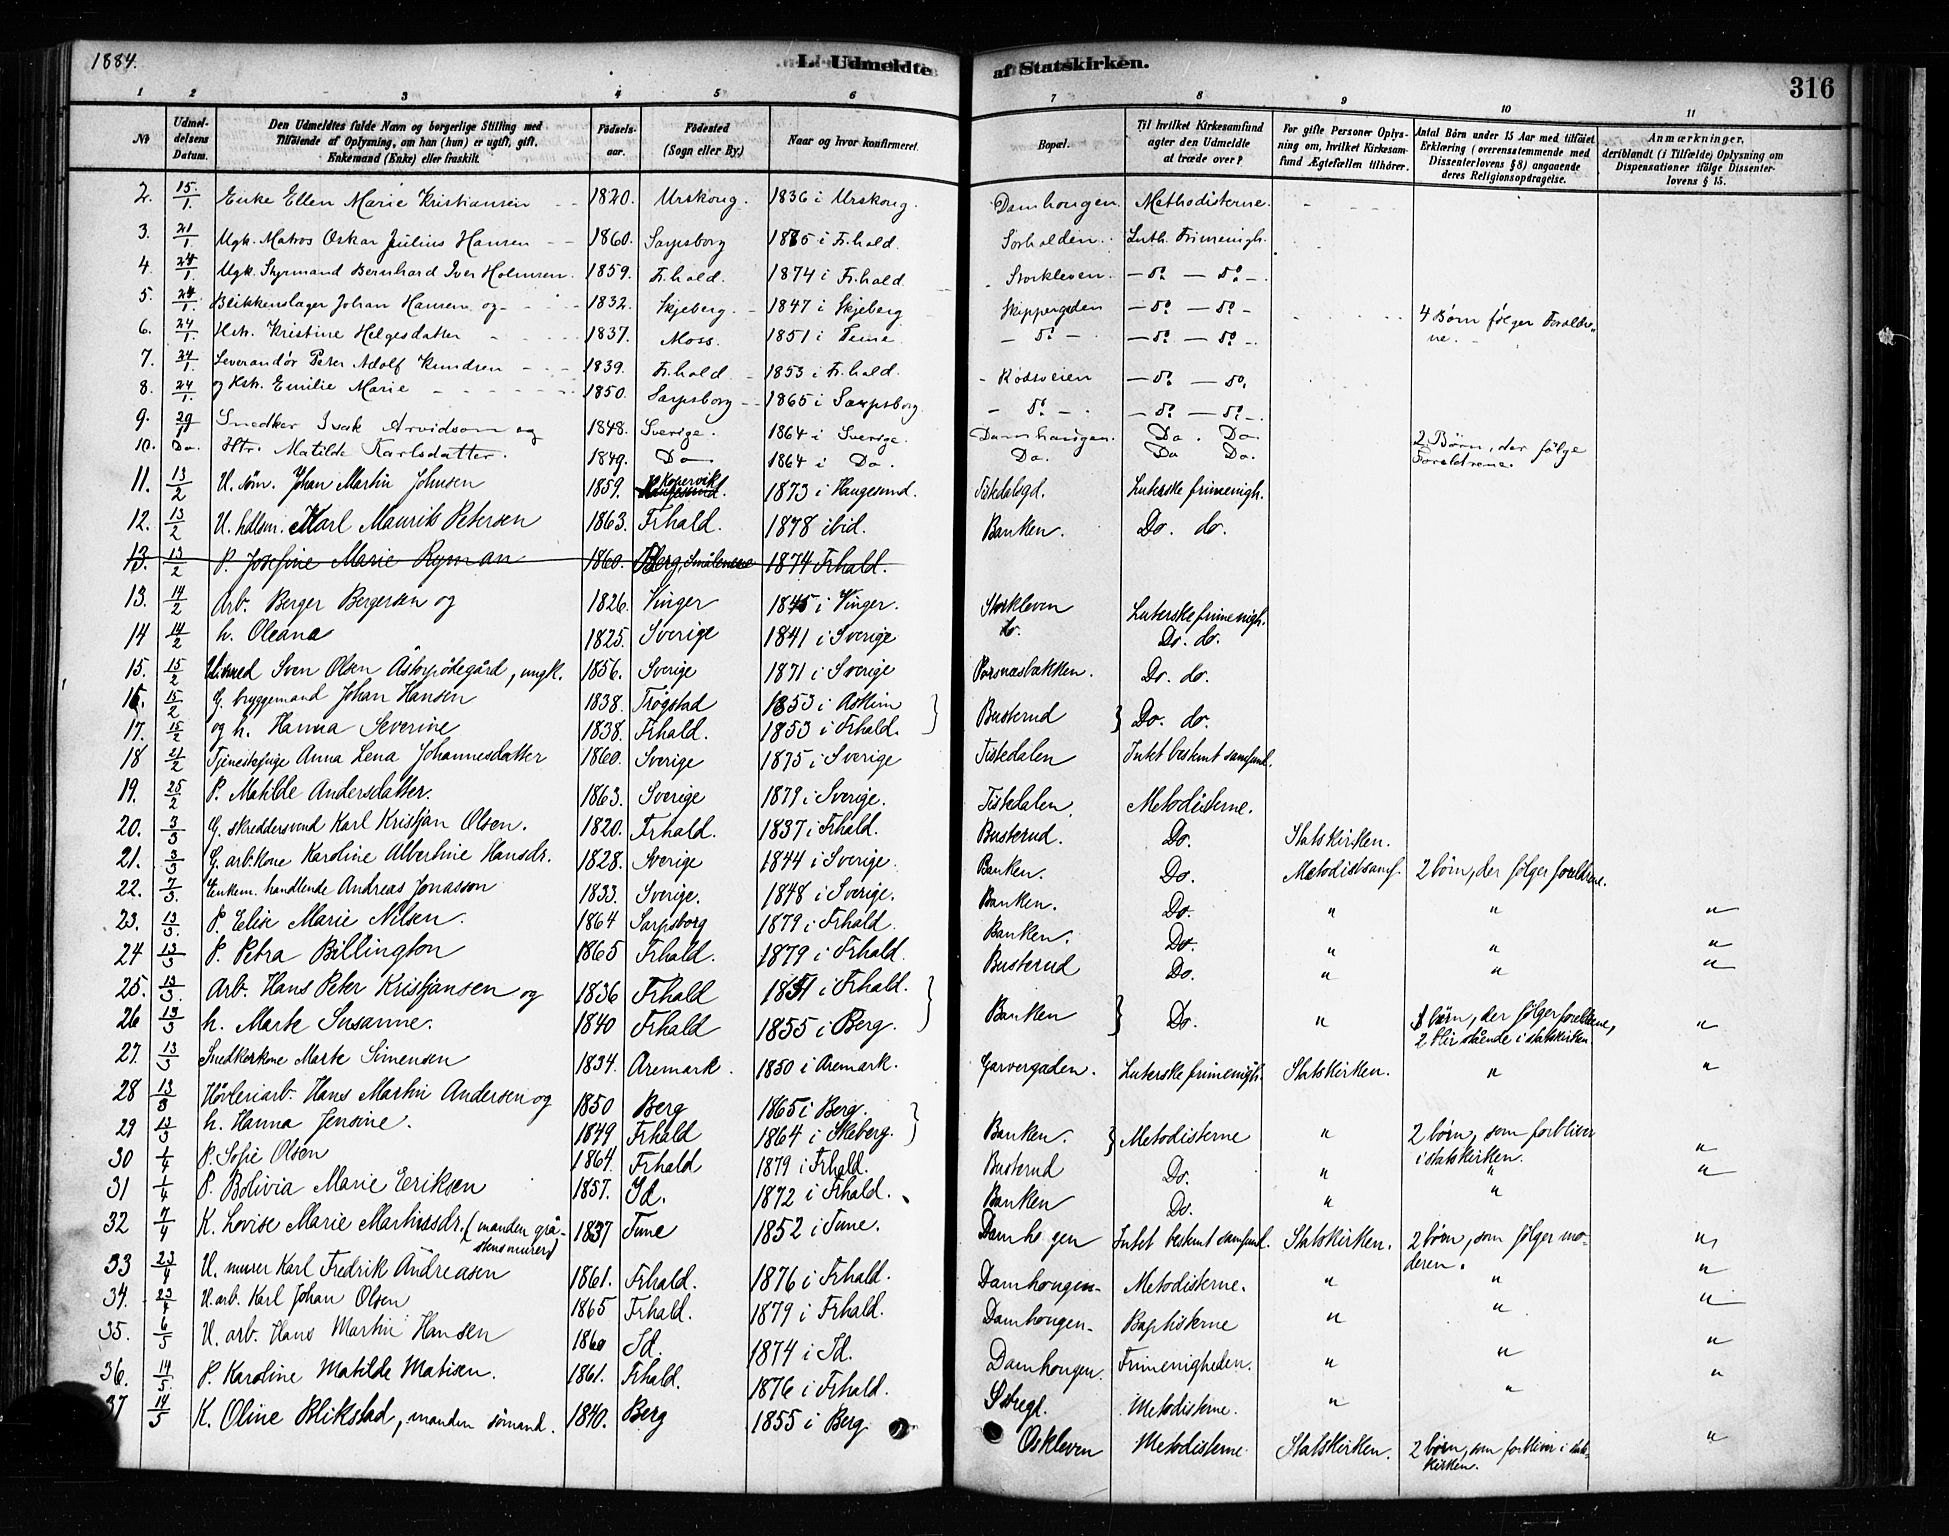 1884.
L. Udmeldte af Statskirken.
316
1 2 3 4 5 6 7 8 9 10 11
No
Udmel-delsens Datum.
Den Udmeldtes fulde Navn og borgerlige Stilling med Tilføiende af Oplysning, om han (hun) er ugift, gift, Enkemand (Enke) eller fraskilt.
Fødsels-aar.
Fødested (Sogn eller By.)
Naar og hvor konfirmeret.
Bopæl.
Til hvilket Kirkesamfund agter den Udmeldte at træde over?
For gifte Personer Oplys-ning om, hvilket Kirkesam-fund Ægtefællen tilhører.
Antal Børn under 15 Aar med tilføiet Erklæring (overensstemmende med Dissenterlovens § 8) angaaende deres Religionsopdragelse.
Anmærkninger, deriblandt (i Tilfælde) Oplysning om Dispensationer ifølge Dissenter-lovens § 15.
2. 15/1. Enke Ellen Marie Kristiansen 1820. Urskoug. 1836 i Urskoug. Damhougen. Methodisterne.
3. 21/1 Ugk. Matros Oskar Julius Hansen 1860. Sarpsborg 1875 i Fr.hald. Sørhalden. Luth. Frimenigh.
4. 24/1. Ugk. Styrmand Bernhard Iver Holmsen. 1859. Fr.hald. 1874 i Fr.hald. Storkleven. - do - do -
5. 24/1. Blikkenslager Johan Hansen og 1832. Skjeberg. 1847 i Skjeberg Skippergaden - do - do - 4 Børn følger Foraldre-ne.
6. 24/1 Hstr. Kristine Helgesdatter 1837. Moss. 1851 i Tune. - do - - do - do -
7. 24/1 Leverandør Peter Adolf Knudsen 1839. Fr.hald 1853 i Fr.hald. Rødsveien - do - do.
8. 24/1. og Hstr. Emilie Marie 1850. Sarpsborg 1865 i Sarpsborg. - do - - do - do -
9. 29/1 Snedker Isak Arvidson og 1848. Sverige. 1864 i Sverige. Damhaugen. Do. Do. 2 Børn, der følge Forældrene.
10. Do. Htr. Matilde Karlsdatter. 1849. Do 1864 i Do. Do. Do Do.
11. 13/2 U. søm. Johan Martin Johnsen 1859. Kopervik 1873 i Haugesund. Tistedalsgd. Luterske frimenigh.
12. 13/2 U. hdlsm. Karl Maurits Petersen 1863. Frhald. 1878 ibid. Banken. Do. do.
13. 13/2 P. Josefine Marie Ryman 1860. Berg, Smålenene 1874 Frhald.
13. 14/2 Arb. Berger Bergersen og 1826. Vinger 1845 i Vinger. Storkleven Luterske frimenigh.
14 14/2 h. Oleana 1825. Sverige 1841 i Sverige do. Do. do.
15. 15/2 Sven Olsen Åsbyødegård, ungk. 1856. Sverige 1871 i Sverige Porsnæsbækken. Do. do.
16. 15/2 G. bryggemand Johan Hansen 1838. Trøgstad 1853 i Askim } Busterud } Do. do.
17. 15/2 og h. Hanna Severine 1838. Frhald. 1853 i Frhald.
18 21/2 Tjenestepige Anna Lena Johannesdatter 1860. Sverige 1875 i Sverige Tistedalen Intet bestemt samfund.
19. 25/2 P. Matilde Andersdatter. 1863. Sverige 1879 i Sverige. Tistedalen. Metodisterne.
20. 3/3 G. skreddersvend Karl Kristjan Olsen. 1820. Frhald. 1837 i Frhald. Busterud. Do. Statskirken.
21. 3/3 G. arb.kone Karoline Albertine Hansdr. 1828. Sverige 1844 i Sverige. Banken. Do. Metodistsamf. 2 børn, der følger foreldrene.
22. 7/3. Enkem. handlende Andreas Jonasson 1833. Sverige. 1848 i Sverige. Banken. Do. " " "
23. 13/3. P. Elise Marie Nilsen. 1864 Sarpsborg 1879 i Frhald. Banken. Do. " " "
24 13/3 P. Petra Billington 1865 Frhald. 1879 i Frhald. Busterud Do. " " "
25. 13/3. Arb. Hans Peter Kristjansen og 1836 Frhald 1851 i Frhald. } Banken } Do. " børn, der følger foreldrene, 2 blir stående i statskirken. "
26 13/3 h. Marte Susanne. 1840 Frhald 1855 i Berg.
27. 13/3 Snedkerkone Marte Simensen 1834. Aremark. 1850 i Aremark. Garvergaden. Luterske frimenigh. Statskirken. " "
28 13/3 Høvleriarb. Hans Martin Andersen og 1850 Berg 1865 i Berg. } Banken. } Metodisterne " 2 børn, som forbliver i statskirken. "
29 13/3 h. Hanna Jensine. 1849 Frhald 1864 i Skeberg.
30 1/4 P. Sofie Olsen 1864. Frhald 1879 i Frhald. Busterud Do. " " "
31 1/4 P. Bolivia Marie Eriksen 1857. Id. 1872 i Frhald. Banken Do. " "
32 7/4 K. Lovise Marie Martinsdr. (manden grå-stensmurer) 1837 Tune 1852 i Tune. Damhogen Intet bestemt samfund. Statskirken. 2 børn, som følger mo-deren. "
33 23/4 U. murer Karl Fredrik Andreasen 1861. Frhald. 1876 i Frhald. Damhougen. Metodisterne. " " "
34. 23/4 U. arb. Karl Johan Olsen 1865 Frhald. 1879 i Frhald. Damhougen. Baptisterne " " "
35. 6/5 U. arb. Hans Martin Hansen 1860 Id. 1874 i Id. Damhougen. Frimenigheden. " " "
36. 14/5. P. Karoline Matilde Matisen. 1861. Frhald. 1876 i Frhald. Metodisterne. " " "
37 14/5 K. Oline Blikstad, manden sømand. 1840. Berg 1855 i Berg Oskleven Metodisterne Statskirken. 2 børn, som forbliver i stats-kirken. "